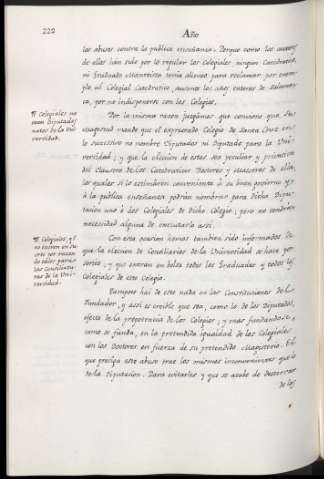 222
Año
los abusos contra la publica enseñanza. Porque como los autores
de ellos hàn sido por lo regular los Colegiales, ningun Catedratico,
ni Graduado Manteista tenia aliento para reclamar, por exem-
plo al Colegial Catedratico, ausente los años enteros de Salaman-
ca, por no indisponerse con los Colegios.
¶ Colegiales no
sean Diputados
natos de la Uni-
versidad.
Por la misma razon juzgamos que conviene que Su
Magestad mande que el expresado Colegio de Santa Cruz en
lo succesivo no nombre Diputados ni Diputado para la Uni-
versidad; y que la eleccion de estos sea peculiar y privativa
del Claustro de los Catedraticos Doctores y Maestros de ella,
los quales si lo estimàren conveniente à su buen govierno y
à la publica enseñanza podràn nombrar para dicha Dipu-
tacion uno ò dos Colegiales de dicho Colegio; pero no tendràn
necesidad alguna de executarlo assi.
¶ Colegiales
no
por razon
de tales para
las Conciliatu-
ras de la Uni-
versidad.
Con esta ocasion hemos tambien sido informados de
que la eleccion de Conciliarios de la Universidad se hace por
sorteo, y que entran en bolsa todos los Graduados y todos los
Colegiales de este Colegio.
Tampoco hai de esto nada en las Constituciones del
Fundador, y assi es creible que sea, como lo de los Diputados,
efecto de la prepotencia de los Colegios, y mas fundandose,
como se funda, en la pretendida igualdad de los Colegiales
con los Doctores en fuerza de su pretendido Magisterio. El
que precisa este abuso trae los mismos inconvenientes que el
de la Diputacion. Para evitarlos y que se acabe de desterrar
de los